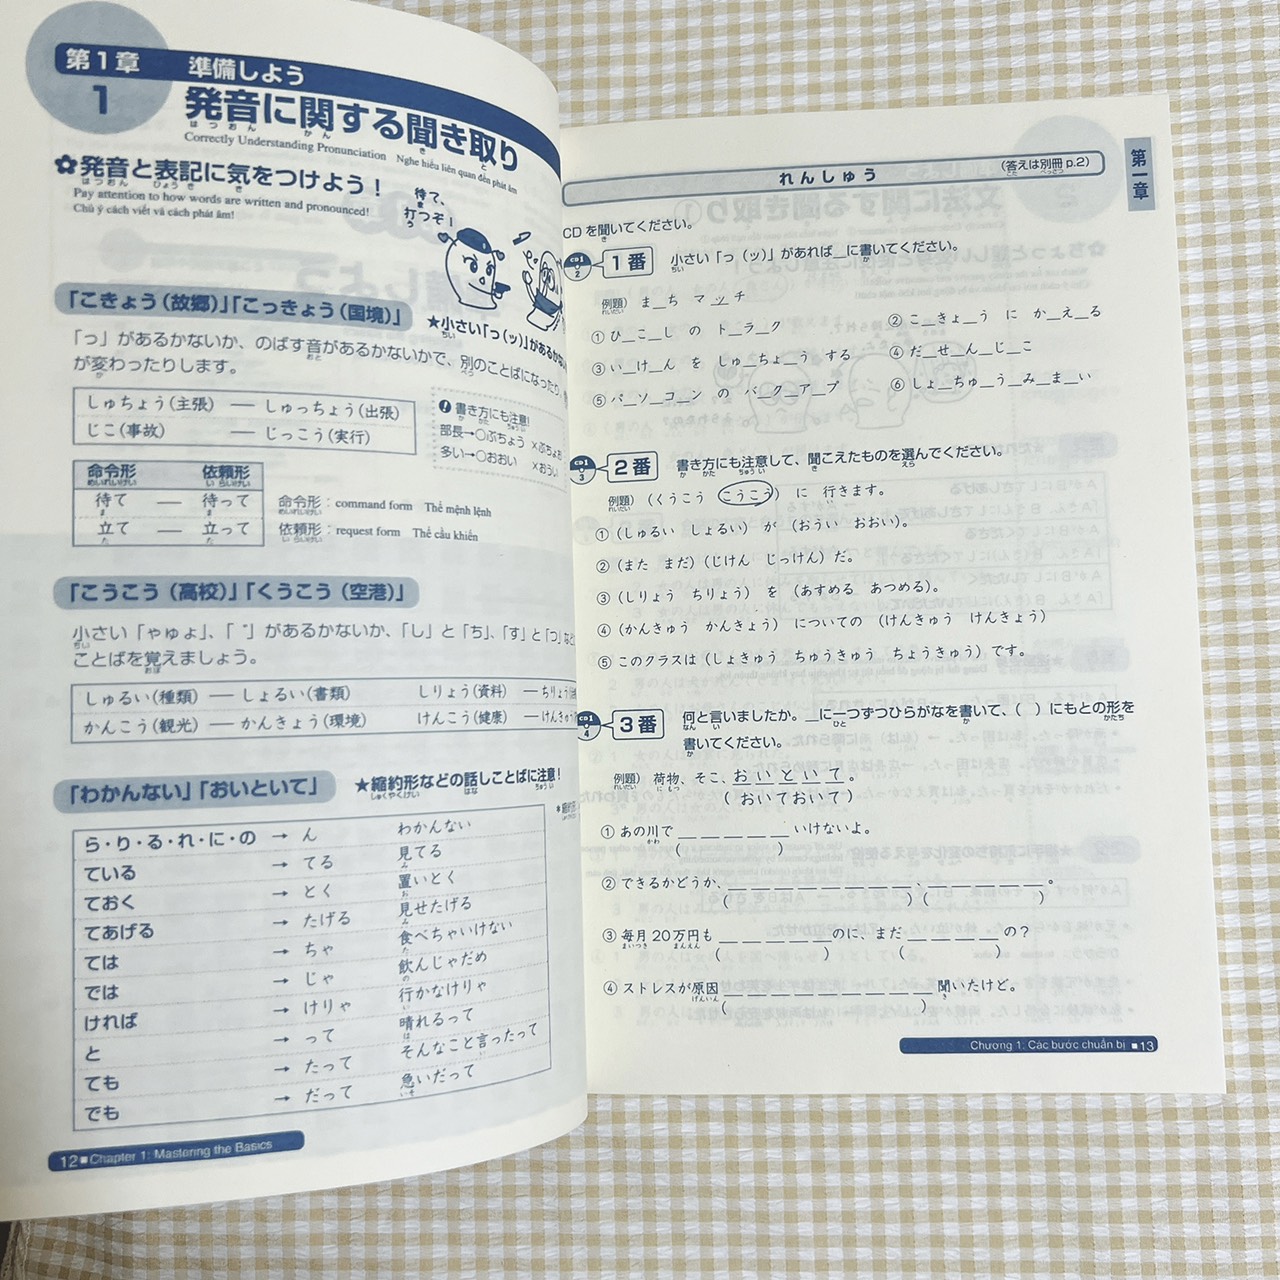 第1章 準備しよう
1
発音に関する聞き取り
はつおん かん き と
Correctly Understanding Pronunciation Nghe hiểu liên quan đến phát âm
✿発音と表記に気をつけよう！
はつおん ひょうき き
Pay attention to how words are written and pronounced!
Chú ý cách viết và cách phát âm!
待て、
ま
打つぞ！
う
「こきょう（故郷）」「こっきょう（国境）」
★小さい「っ（ッ）」があるかない
ちい
「っ」があるかないか、のばす音があるかないかで、別のことばになったり、
おと べつ
が変わったりします。
か
しゅちょう（主張） ― しゅっちょう（出張）
じこ（事故） ― じっこう（実行）
書き方にも注意！
か かた ちゅうい
部長→○ぶちょう ×ぶちょお
多い→○おおい ×おうい
命令形 依頼形
めいれいけい いらいけい
待て ― 待って
ま
立て ― 立って
た た
命令形：command form Thể mệnh lệnh
めいれいけい
依頼形：request form Thể cầu khiến
いらいけい
「こうこう（高校）」「くうこう（空港）」
小さい「ゃゅょ」、「゛」があるかないか、「し」と「ち」、「す」と「つ」など
ちい
ことばを覚えましょう。
おぼ
しゅるい（種類） ― しょるい（書類） しりょう（資料） ― ちりょう
かんこう（観光） ― かんきょう（環境） けんこう（健康） ― けんき
「わかんない」「おいといて」
★縮約形などの話しことばに注意！
しゅくやくけい はな ちゅうい
ら・り・る・れ・に・の → ん わかんない
ている → てる 見てる
み
ておく → とく 置いとく
お
てあげる → たげる 見せたげる
み
ては → ちゃ 食べちゃいけない
た
では → じゃ 飲んじゃだめ
の
ければ → けりゃ 行かなけりゃ
い
と → って 晴れるって
は
ても → たって そんなこと言ったって
い
でも → だって 急いだって
いそ
12■Chapter 1: Mastering the Basics
れんしゅう
（答えは別冊 p.2）
こた べっさつ
第一章
CDを聞いてください。
き
CD1 2
1番 小さい「っ（ッ）」があれば＿に書いてください。
ちい か
例題） ま＿ち マッチ
れいだい
① ひ＿こ＿し の ト＿ラ＿ク
② こ＿きょ＿う に か＿え＿る
③ い＿け＿ん を しゅ＿ちょ＿う する
④ だ＿せ＿ん＿じ＿こ
⑤ パ＿ソ＿コ＿ン の バ＿ク＿ア＿プ
⑥ しょ＿ちゅ＿う＿み＿ま＿い
CD1 3
2番 書き方にも注意して、聞こえたものを選んでください。
か かた ちゅうい き えら
例題） （くうこう こうこう） に 行きます。
れいだい い
① （しゅるい しょるい） が （おうい おおい）。
② （また まだ）（じけん じっけん）だ。
③ （しりょう ちりょう） を （あすめる あつめる）。
④ （かんきゅう かんきょう） についての （けんきゅう けんきょう）
⑤ このクラスは（しょきゅう ちゅうきゅう ちょうきゅう）です。
CD1 4
3番 何と言いましたか。＿に一つずつひらがなを書いて、（ ）にもとの形を
なん い ひと か かたち
書いてください。
か
例題） 荷物、そこ、おいといて。
れいだい にもつ
（おいておいて）
① あの川で ＿＿＿＿＿ いけないよ。
かわ
（ ）
② できるかどうか、＿＿＿＿＿＿＿＿＿、＿＿＿＿＿＿。
（ ）（ ）
③ 毎月20万円も ＿＿＿＿＿のに、まだ ＿＿＿＿の？
まいつき まんえん
（ ） （ ）
④ ストレスが原因＿＿＿＿＿＿＿＿＿聞いたけど。
げんいん き
（ ）
Chương 1: Các bước chuẩn bị ■13